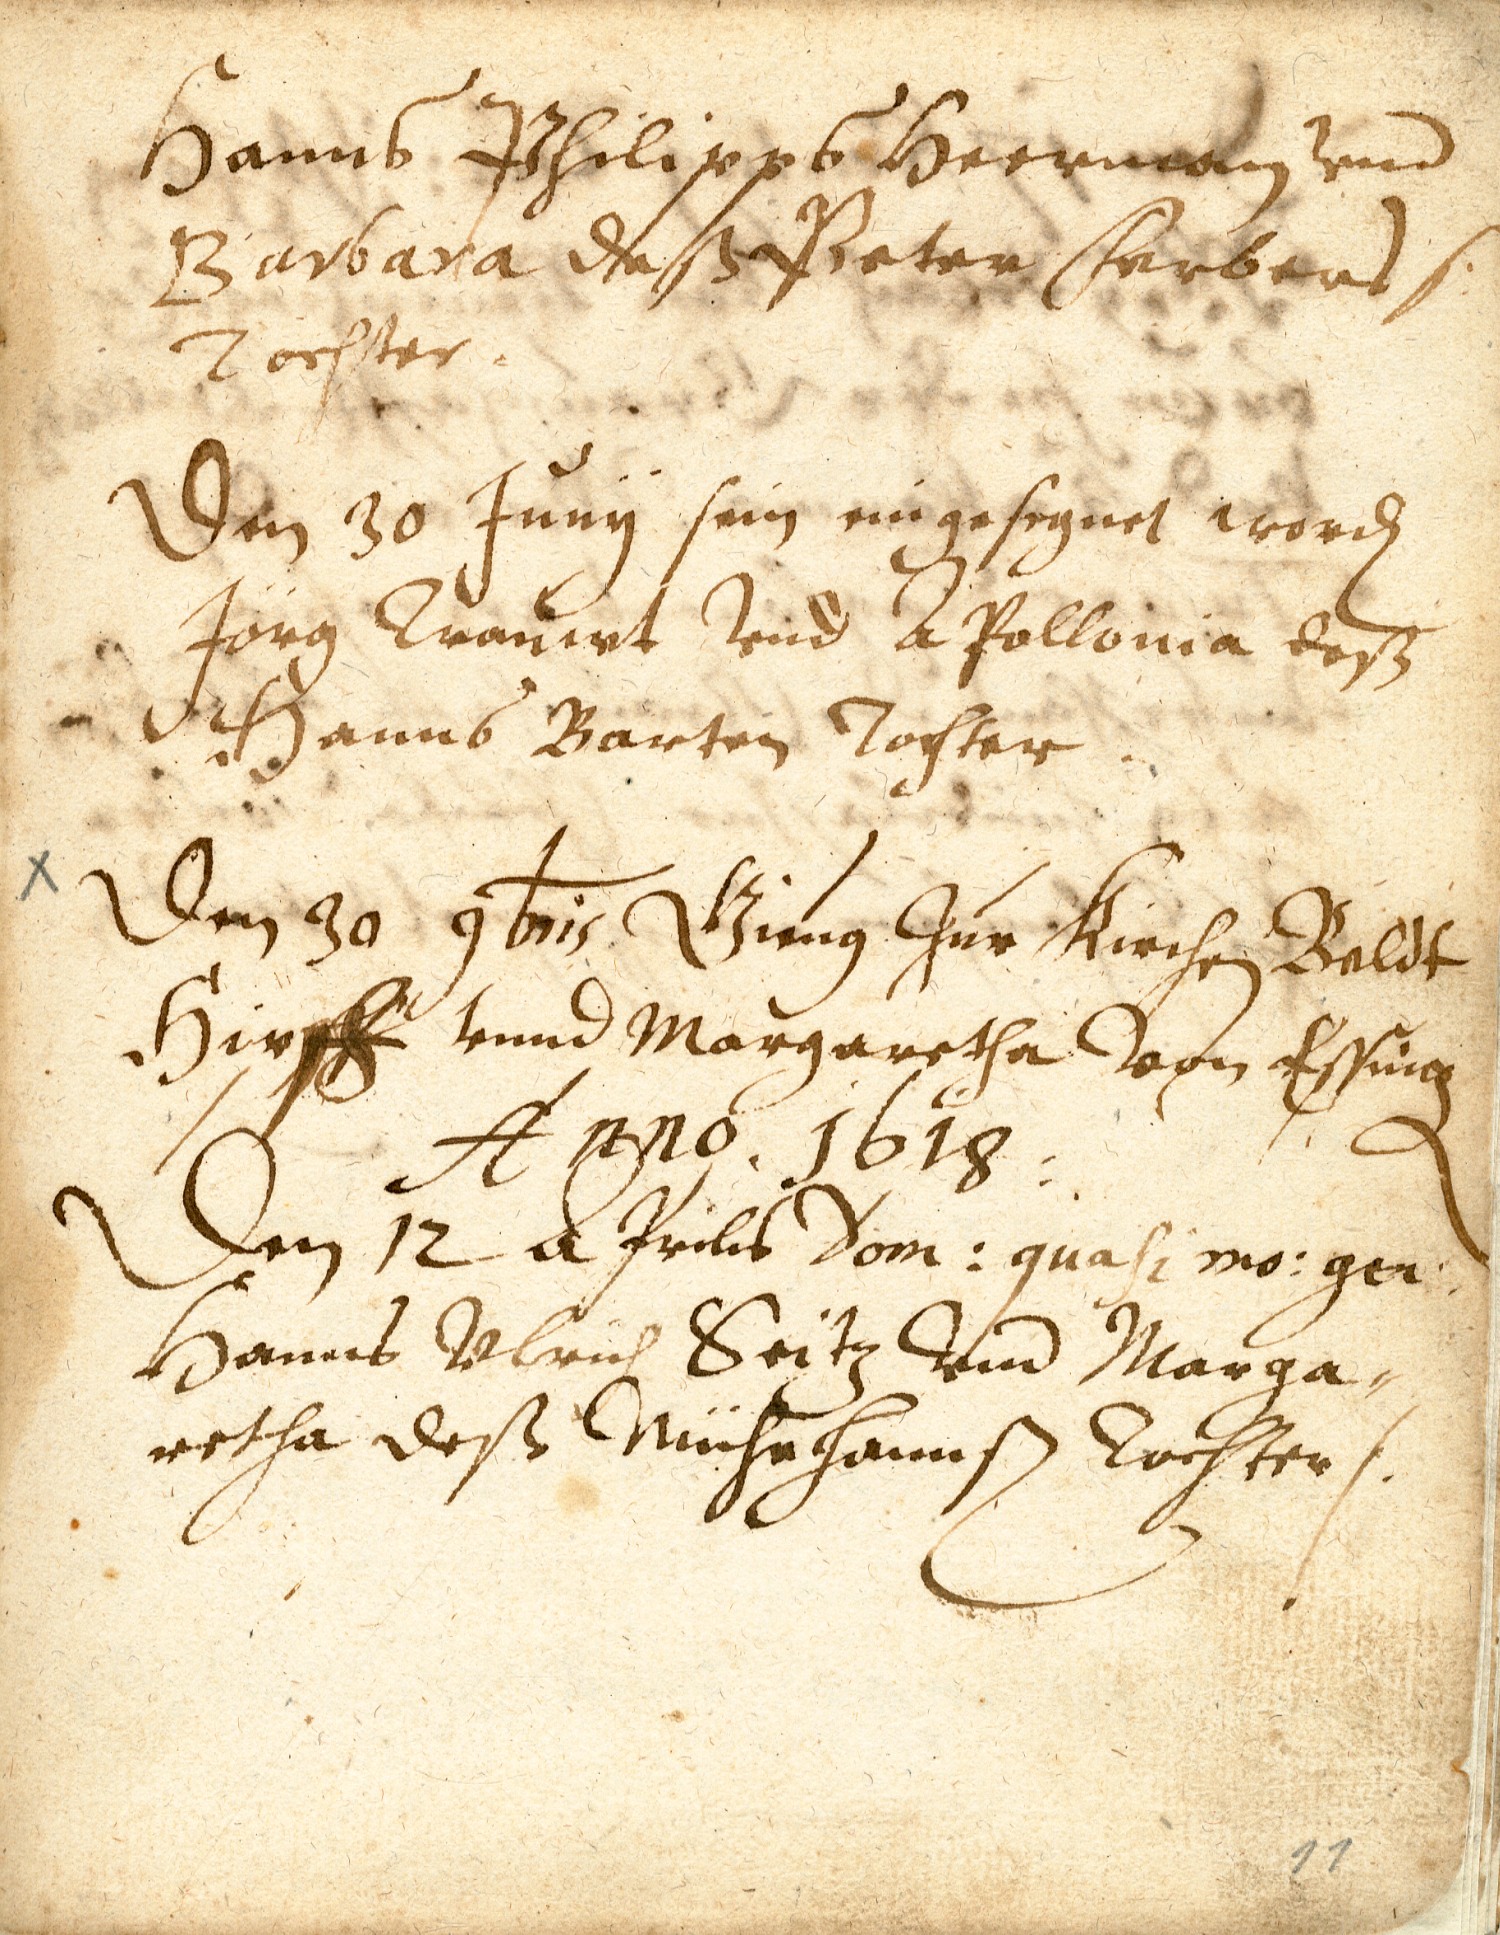 Hanns Philipps Heerman vnd
Barbara deß Peter Ferbers s.
Tochter.
Den 30 Junij sein eingesegnet word
Jörg Trauwt Vnd aPollonia deß
Hanns Barten Tochter.
x Den 30 9bris Gieng Zur Kirchen Veldt
vnnd Margaretha Von Essing
Anno. 1618:
Den 12 aPrilis Dom: quasi mo: gen.
Hanns Vlrich Seitz Vnd Marga-
retha deß Tochter
11